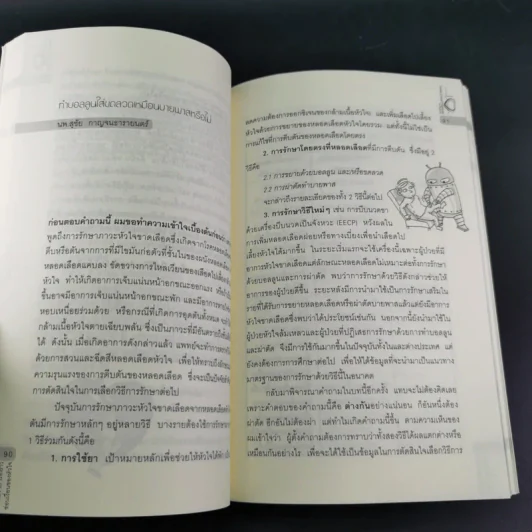 ทำบอลลูนใส่ขดลวดเหมือนบายพาสหรือไม่
นพ.สุชัย กาญจนธารายนตร์
ก่อนตอบคำถามนี้ ผมขอทำความเข้าใจเบื้องต้นก่อน
พูดถึงการรักษาภาวะหัวใจขาดเลือดซึ่งเกิดจากโรคหลอดเลือด
ตีบหรือตันจากการที่มีไขมันก่อตัวที่ชั้นในของผนังหลอดเลือด
หลอดเลือดแคบลง ขัดขวางการไหลเวียนของเลือดไปเลี้ยง
หัวใจ ทำให้เกิดอาการเจ็บแน่นหน้าอกขณะออกแรง หรือ
ขึ้นอาจมีอาการเจ็บแน่นหน้าอกขณะพัก และมีอาการ
หอบเหนื่อยร่วมด้วย หรือกรณีที่เกิดการอุดตันทั้งหมด
กล้ามเนื้อหัวใจตายเฉียบพลัน ซึ่งเป็นภาวะที่มีอันตราย
ได้ ดังนั้น เมื่อเกิดอาการดังกล่าวแล้ว แพทย์จะทำการ
ด้วยการสวนและฉีดสีหลอดเลือดหัวใจ เพื่อให้ทราบถึง
ความรุนแรงของการตีบตันของหลอดเลือด ซึ่งจะเป็นปัจจัย
การตัดสินใจในการเลือกวิธีการรักษาต่อไป
ปัจจุบันการรักษาภาวะหัวใจขาดเลือดจากหลอดเลือด
ตันมีการรักษาหลักๆ อยู่หลายวิธี บางรายต้องใช้การรักษา
1 วิธีร่วมกันดังนี้คือ
1. การใช้ยา เป้าหมายหลักเพื่อช่วยให้หัวใจได้พัก
90
ลดความต้องการออกซิเจนของกล้ามเนื้อหัวใจ และเพิ่มเลือดไปเลี้ยง
หัวใจด้วยการขยายของหลอดเลือดหัวใจโดยรวม แต่ทั้งนี้ไม่ใช่เป็น
การแก้ไขที่การตีบตันของหลอดเลือดโดยตรง
2. การรักษาโดยตรงที่หลอดเลือดที่มีการตีบตัน ซึ่งมีอยู่ 2
วิธีคือ
2.1 การขยายด้วยบอลลูน และ/หรือขดลวด
2.2 การผ่าตัดทำบายพาส
จะกล่าวถึงรายละเอียดของทั้ง 2 วิธีนี้ต่อไป
3. การรักษาวิธีใหม่ๆ เช่น การปั๊มนวดขา
ด้วยเครื่องบีบนวดเป็นจังหวะ (EECP) หวังผลใน
การเพิ่มหลอดเลือดฝอยหรือทางเบี่ยงเพื่อนำเลือดไป
หัวใจได้มากขึ้น ในระยะเริ่มแรกจะใช้เครื่องนี้เฉพาะผู้ป่วยที่มี
อาการหัวใจขาดเลือดแต่ลักษณะหลอดเลือดไม่เหมาะสมต่อการรักษา
ด้วยบอลลูนและการผ่าตัด พบว่าการรักษาด้วยวิธีดังกล่าวช่วยให้
อาการของผู้ป่วยดีขึ้น ระยะหลังมีการนำมาใช้เป็นการรักษาเสริมใน
รายที่ได้รับการขยายหลอดเลือดหรือผ่าตัดบายพาสแล้วแต่ยังมีอาการ
หัวใจขาดเลือดซึ่งพบว่าได้ประโยชน์เช่นกัน นอกจากนี้ยังนำมาใช้ใน
ผู้ป่วยหัวใจล้มเหลวและผู้ป่วยที่ปฏิเสธการรักษาด้วยการทำบอลลูน
และผ่าตัด จึงมีการใช้กันมากขึ้นในปัจจุบันทั้งในและต่างประเทศ แต่
ยังคงต้องการการศึกษาต่อไป เพื่อให้ได้ข้อมูลที่จะนำมาเป็นแนวทาง
มาตรฐานของการรักษาด้วยวิธีนี้ในอนาคต
กลับมาพิจารณาคำถามในบทนี้อีกครั้ง แทบจะไม่ต้องคิดเลย
เพราะคำตอบของคำถามนี้คือ ต่างกันอย่างแน่นอน ก็อันหนึ่งต้อง
ผ่าตัด อีกอันไม่ต้องผ่า แต่ทำไมเกิดคำถามนี้ขึ้น ตามความเห็นของ
ผมเข้าใจว่า ผู้ตั้งคำถามต้องการทราบว่าทั้งสองวิธีได้ผลแตกต่างหรือ
เหมือนกันอย่างไร เพื่อจะได้ใช้เป็นข้อมูลในการตัดสินใจเลือกวิธีการ